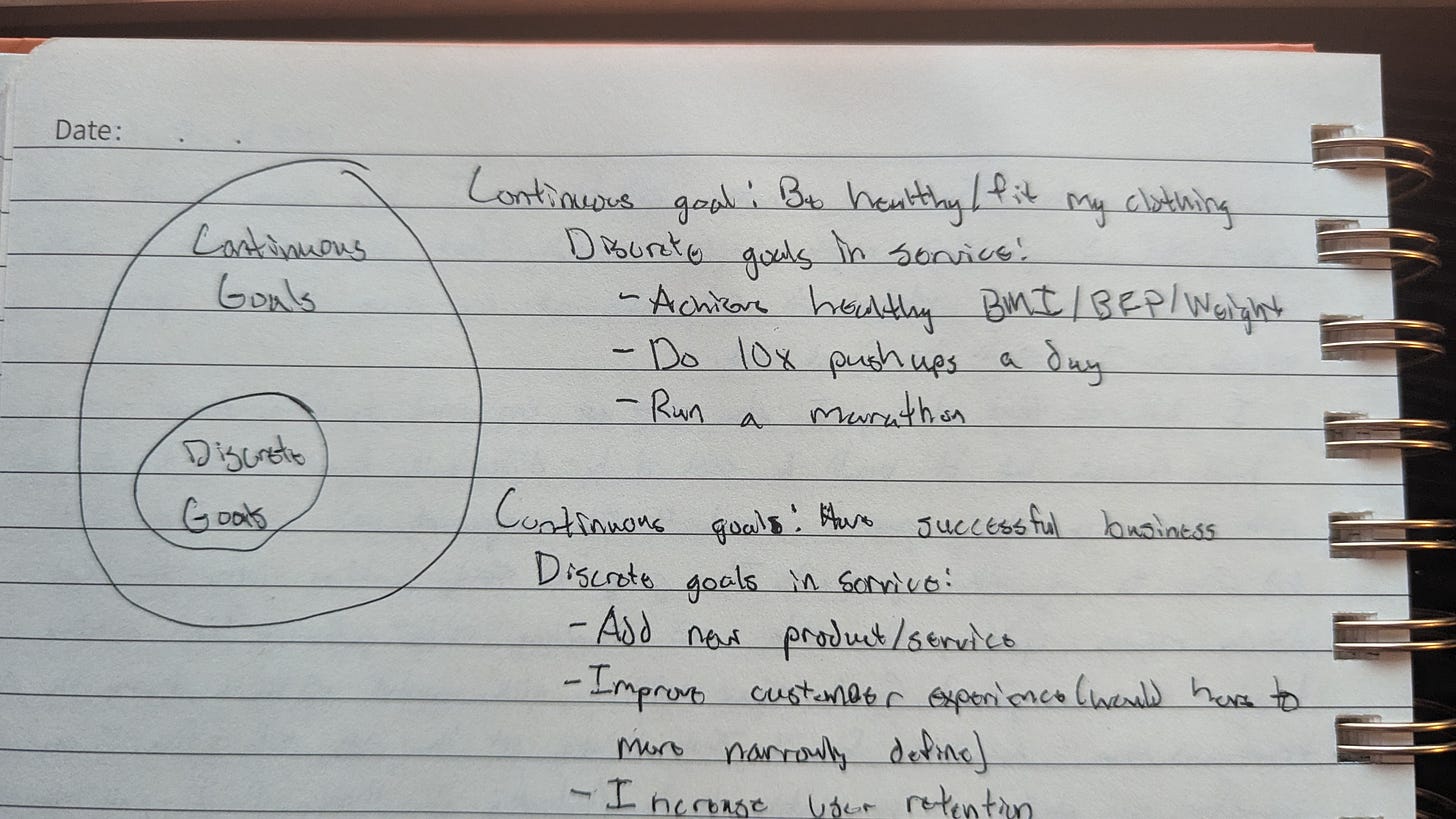 Date: . .
Continuous
Goals
Discrete
Goals
Continuous goal: Be healthy/fit my clothing
Discrete goals in service:
- Achieve healthy BMI/BFP/Weight
- Do 10x pushups a day
- Run a marathon
Continuous goals: Have successful business
Discrete goals in service:
- Add new product/service
- Improve customer experience (would have to
more narrowly define)
- Increase user retention